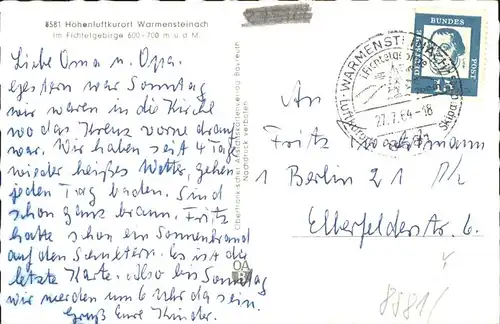 8581 Höhenluftkurort Warmensteinach
im Fichtelgebirge 600-700 m ü. d. M.
Liebe Oma u. Opa.
gestern war Sonntag
wir waren in die Kirche
wo das Kreuz vorne dran
war. Wir haben seit 4 Tag
wieder heißes Wetter, gehen
jeden Tag baden. Sind
schon ganz braun. Fritz
hatte schon ein Sonnenbrand
auf den Schultern. Es ist die
letzte Karte. Also bis Sonntag
wir werden um 6 Uhr da sein.
Gruß Eure Kinder.
Nachdruck verboten
OA
B
DEUTSCHE
BUNDES
POST
15
WARMENSTEINACH
Fichtelgebirge
27.7.64-18
An
Fritz
1 Berlin 21
Elberfelderstr. 6.
8581/